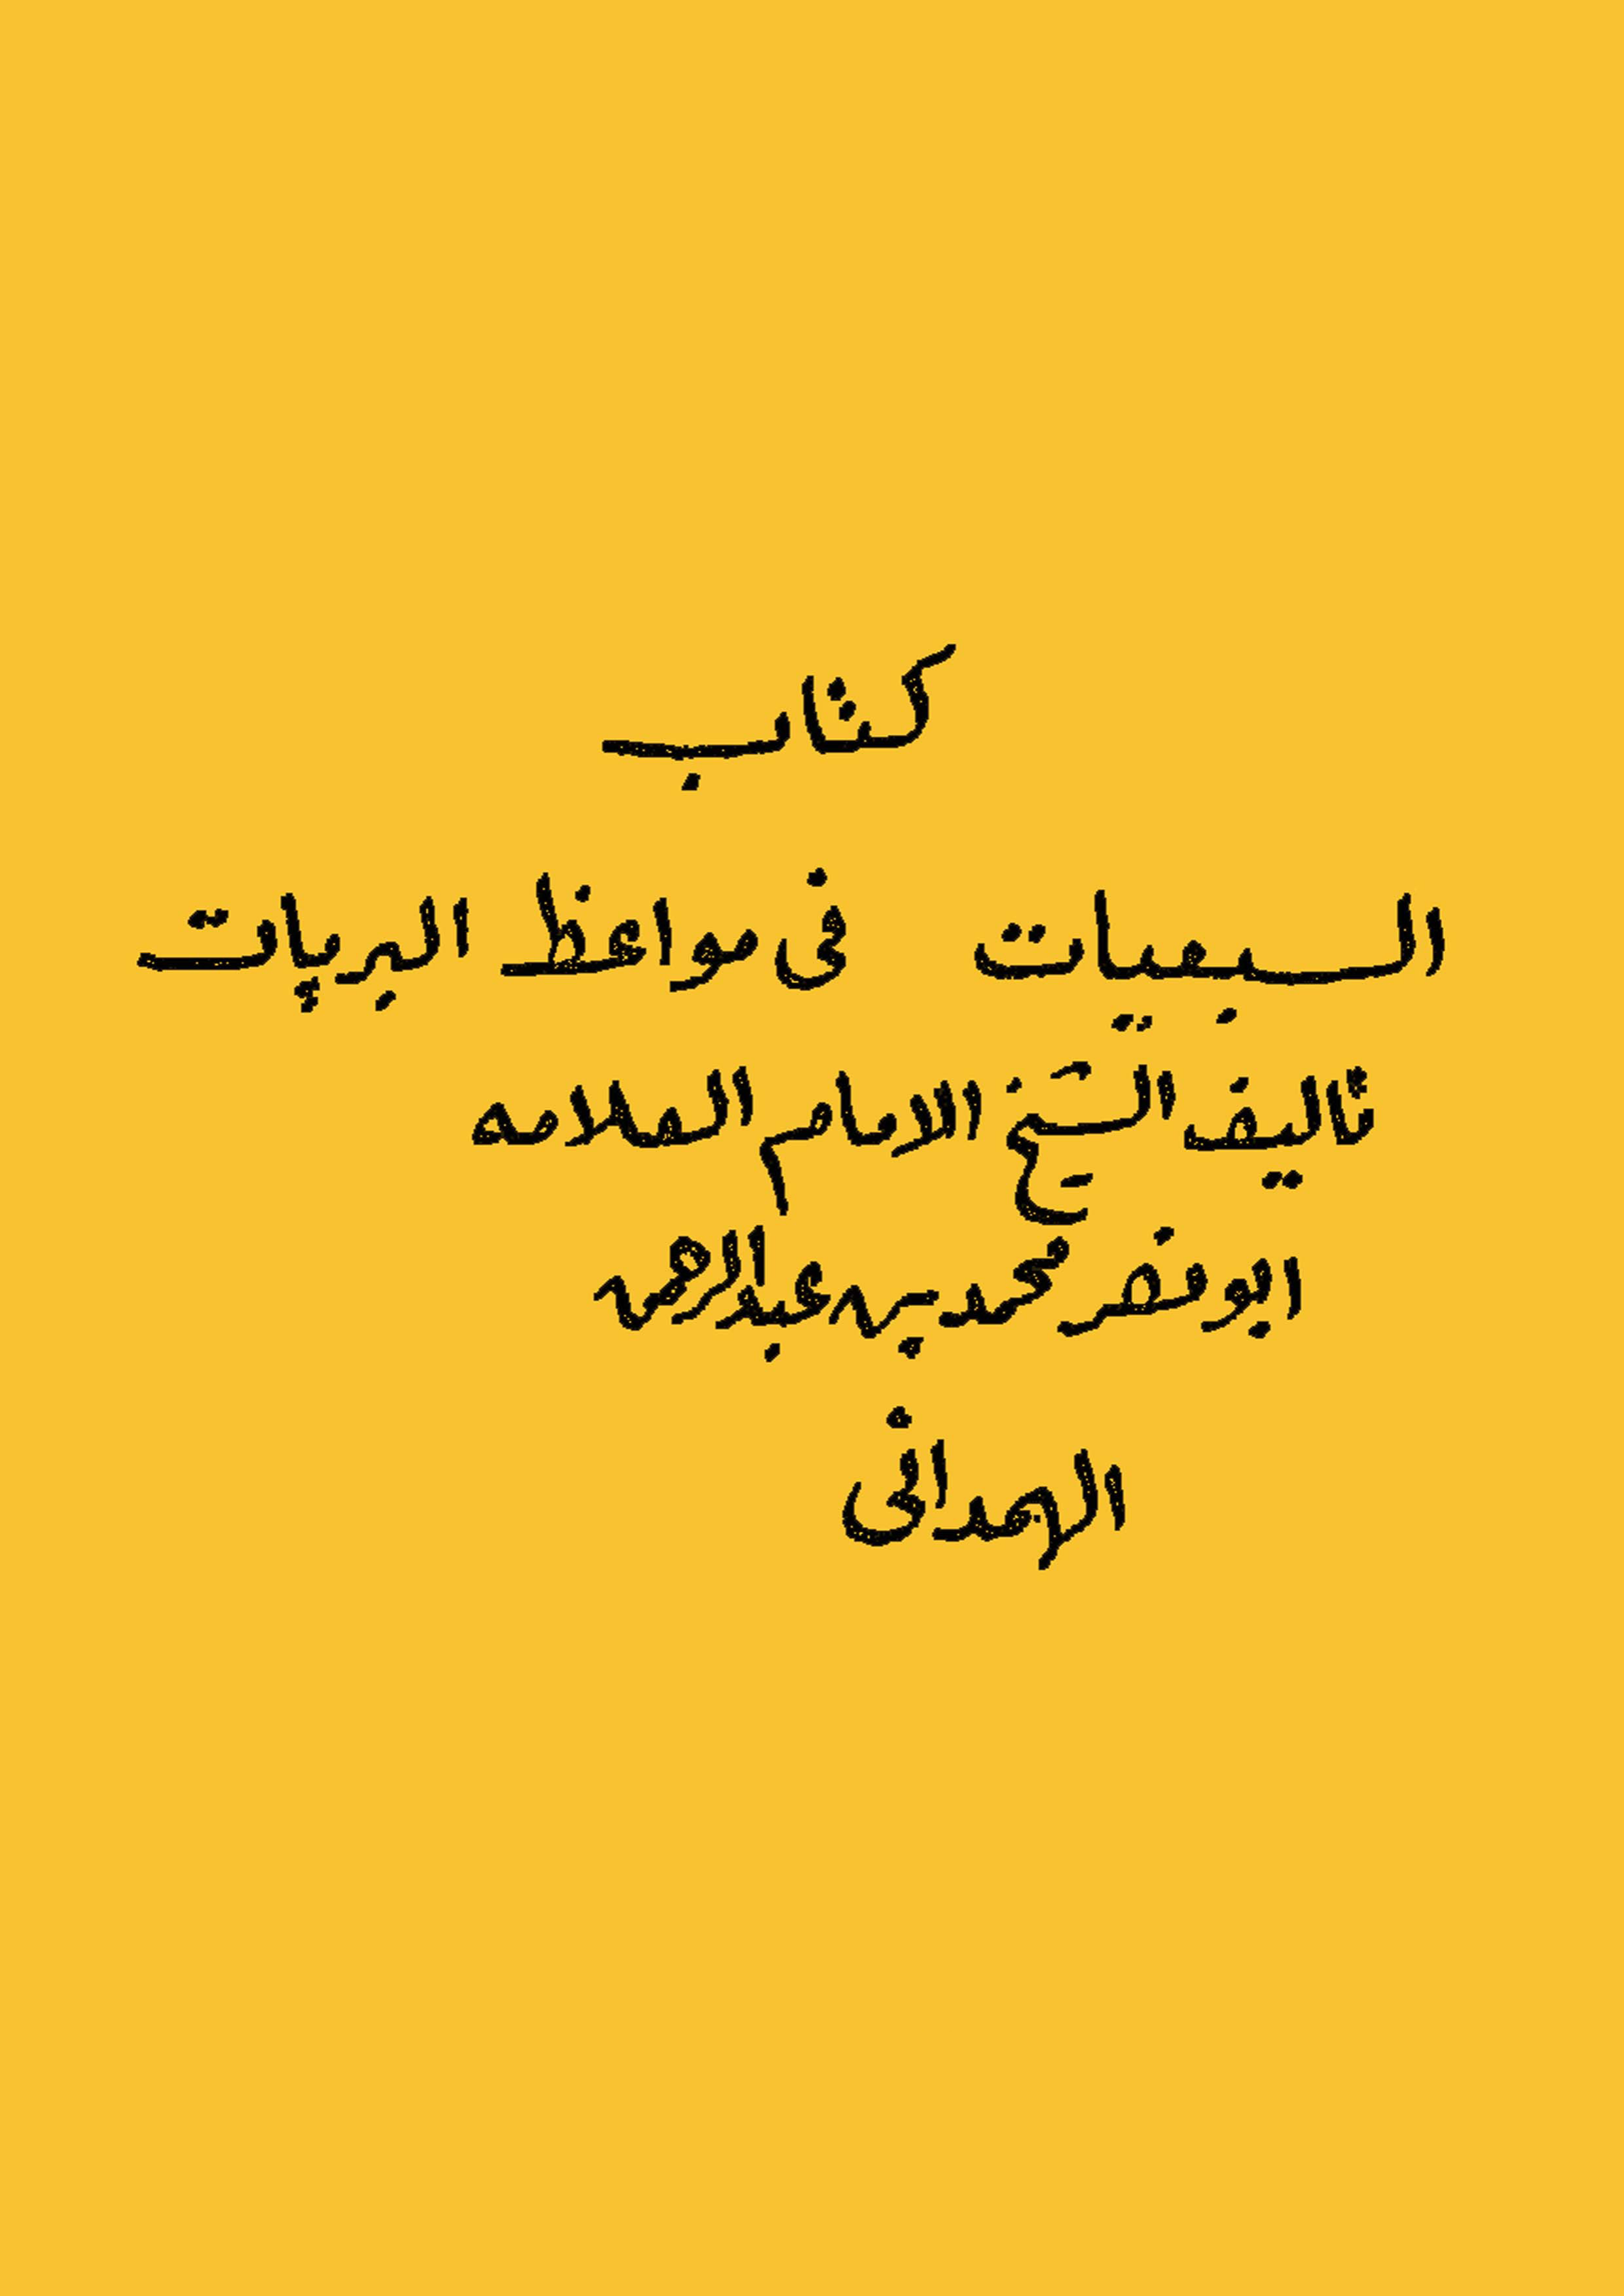 كتاب
السبعيات فى مواعظ البريات
تأليف الشيخ الامام العلامه
ابو نصر محمد بن عبد الرحمن
الهمدانى